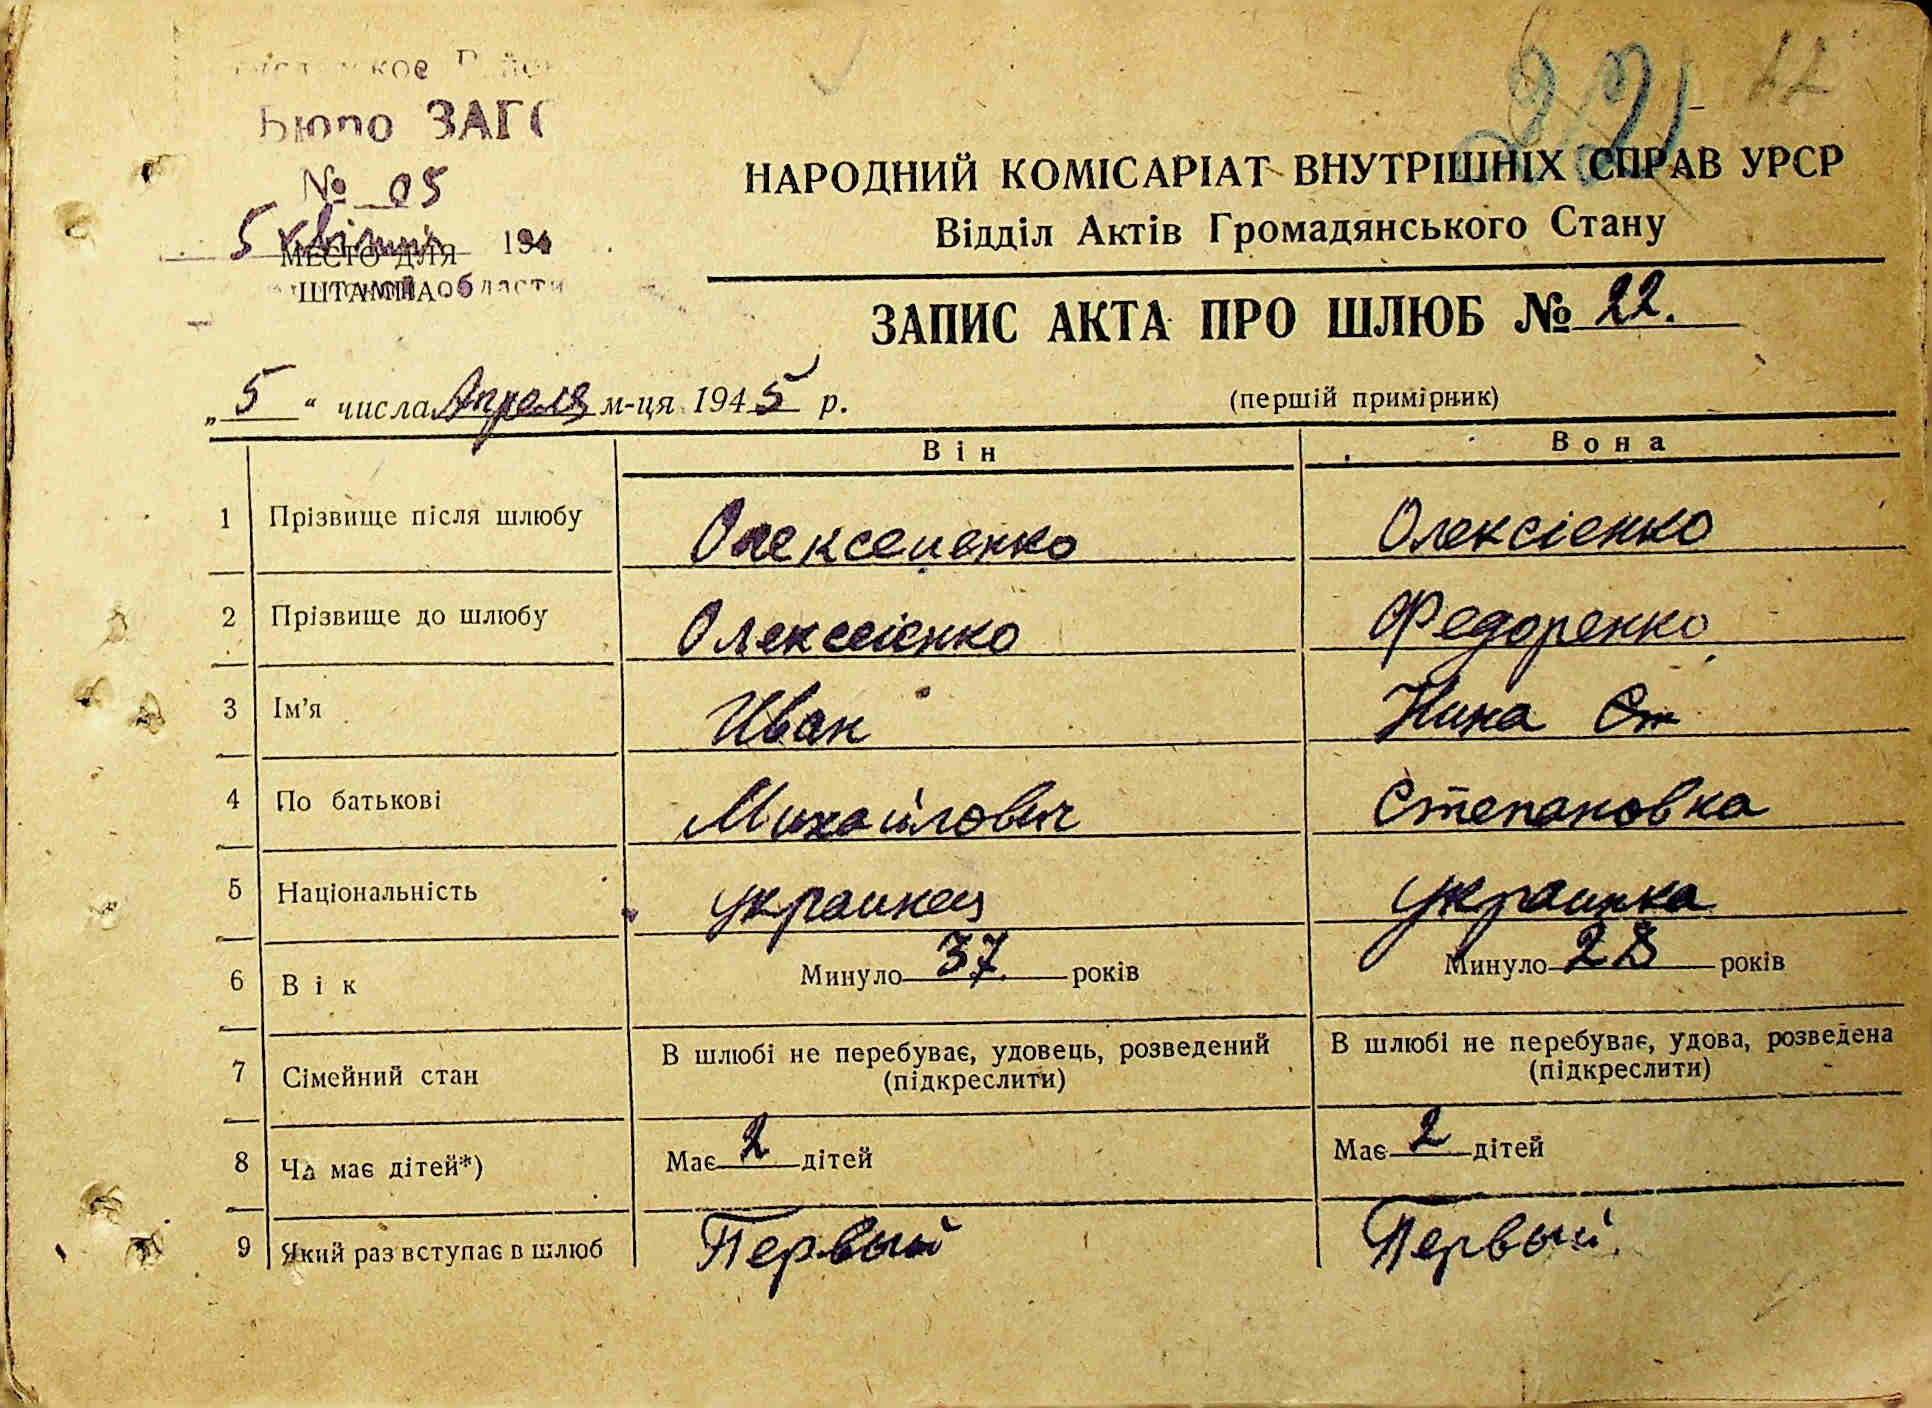 Бюро ЗАГС
№ 05
5 квітня 194
МЕСТО ДЛЯ
ШТАМПА области
22
НАРОДНИЙ КОМІСАРІАТ ВНУТРІШНІХ СПРАВ УРСР
Відділ Актів Громадянського Стану
ЗАПИС АКТА ПРО ШЛЮБ № 22.
„5“ числа Апреля м-ця 1945 р. (першій примірник)
Він Вона
1 Прізвище після шлюбу Олексеиенко Олексієнко
2 Прізвище до шлюбу Олексеієнко Федоренко
3 Ім’я Иван Нина Ст
4 По батькові Михайлович Степановна
5 Національність украинец украинка
6 Вік Минуло 37 років Минуло 28 років
7 Сімейний стан В шлюбі не перебуває, удовець, розведений (підкреслити) В шлюбі не перебуває, удова, розведена (підкреслити)
8 Чи має дітей*) Має 2 дітей Має 2 дітей
9 Який раз вступає в шлюб Первый Первый